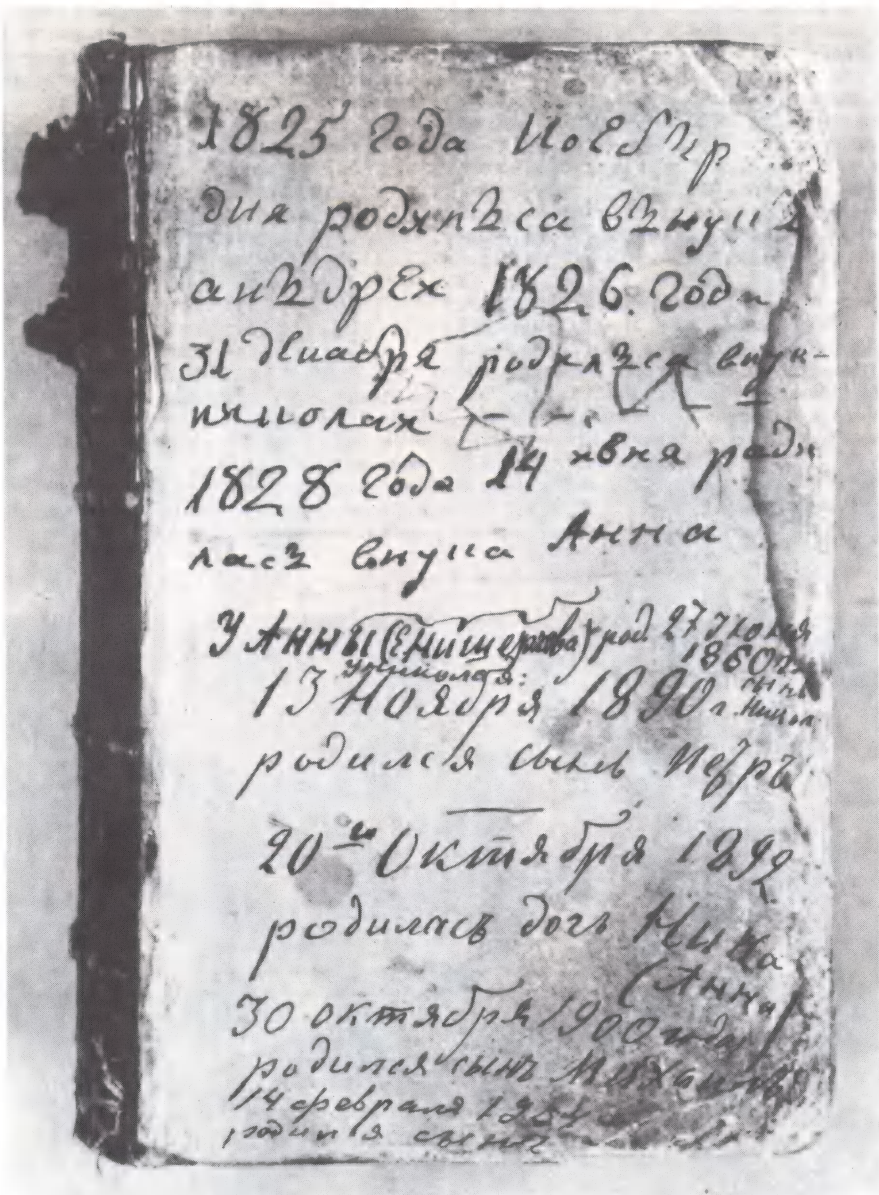 1825 года Ноебър
дня родялъса вънукъ
анъдрех 1826. года
31 декабря родилъса внук-
николах
1828 года 14 июня роди
ласъ внука Анна
У Анны род. 27 Июня
1860 г.
сынъ
у Николая:
13 Ноября 1890 г. Никол
родился сынъ Петръ
20го Октября 1892
родилась дочь Нина
(Анна)
30 октября 1900 года
родился сынъ Михаилъ
14 февраля
родился сынъ